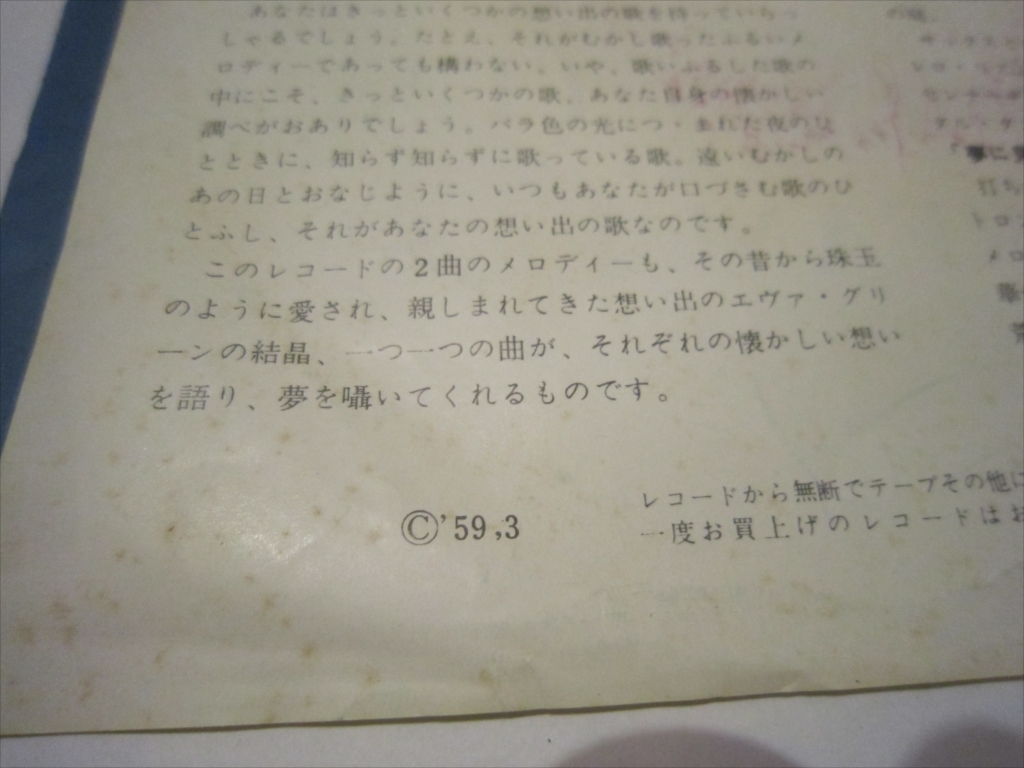 あなたはきっといくつかの想い出の歌を持っていらっ
しゃるでしょう。たとえ、それがむかし歌ったふるいメ
ロディーであっても構わない。いや、歌いふるした歌の
中にこそ、きっといくつかの歌、あなた自身の懐かしい
調べがおありでしょう。バラ色の光につゝまれた夜のひ
とときに、知らず知らずに歌っている歌。遠いむかしの
あの日とおなじように、いつもあなたが口づさむ歌のひ
とふし、それがあなたの想い出の歌なのです。
このレコードの2曲のメロディーも、その昔から珠玉
のように愛され、親しまれてきた想い出のエヴァ・グリ
ーンの結晶、一つ一つの曲が、それぞれの懐かしい想い
を語り、夢を囁いてくれるものです。
Ⓒ'59,3
レコードから無断でテープその他に
一度お買上げのレコードはお
「夢に
打ち
トロン
メロ